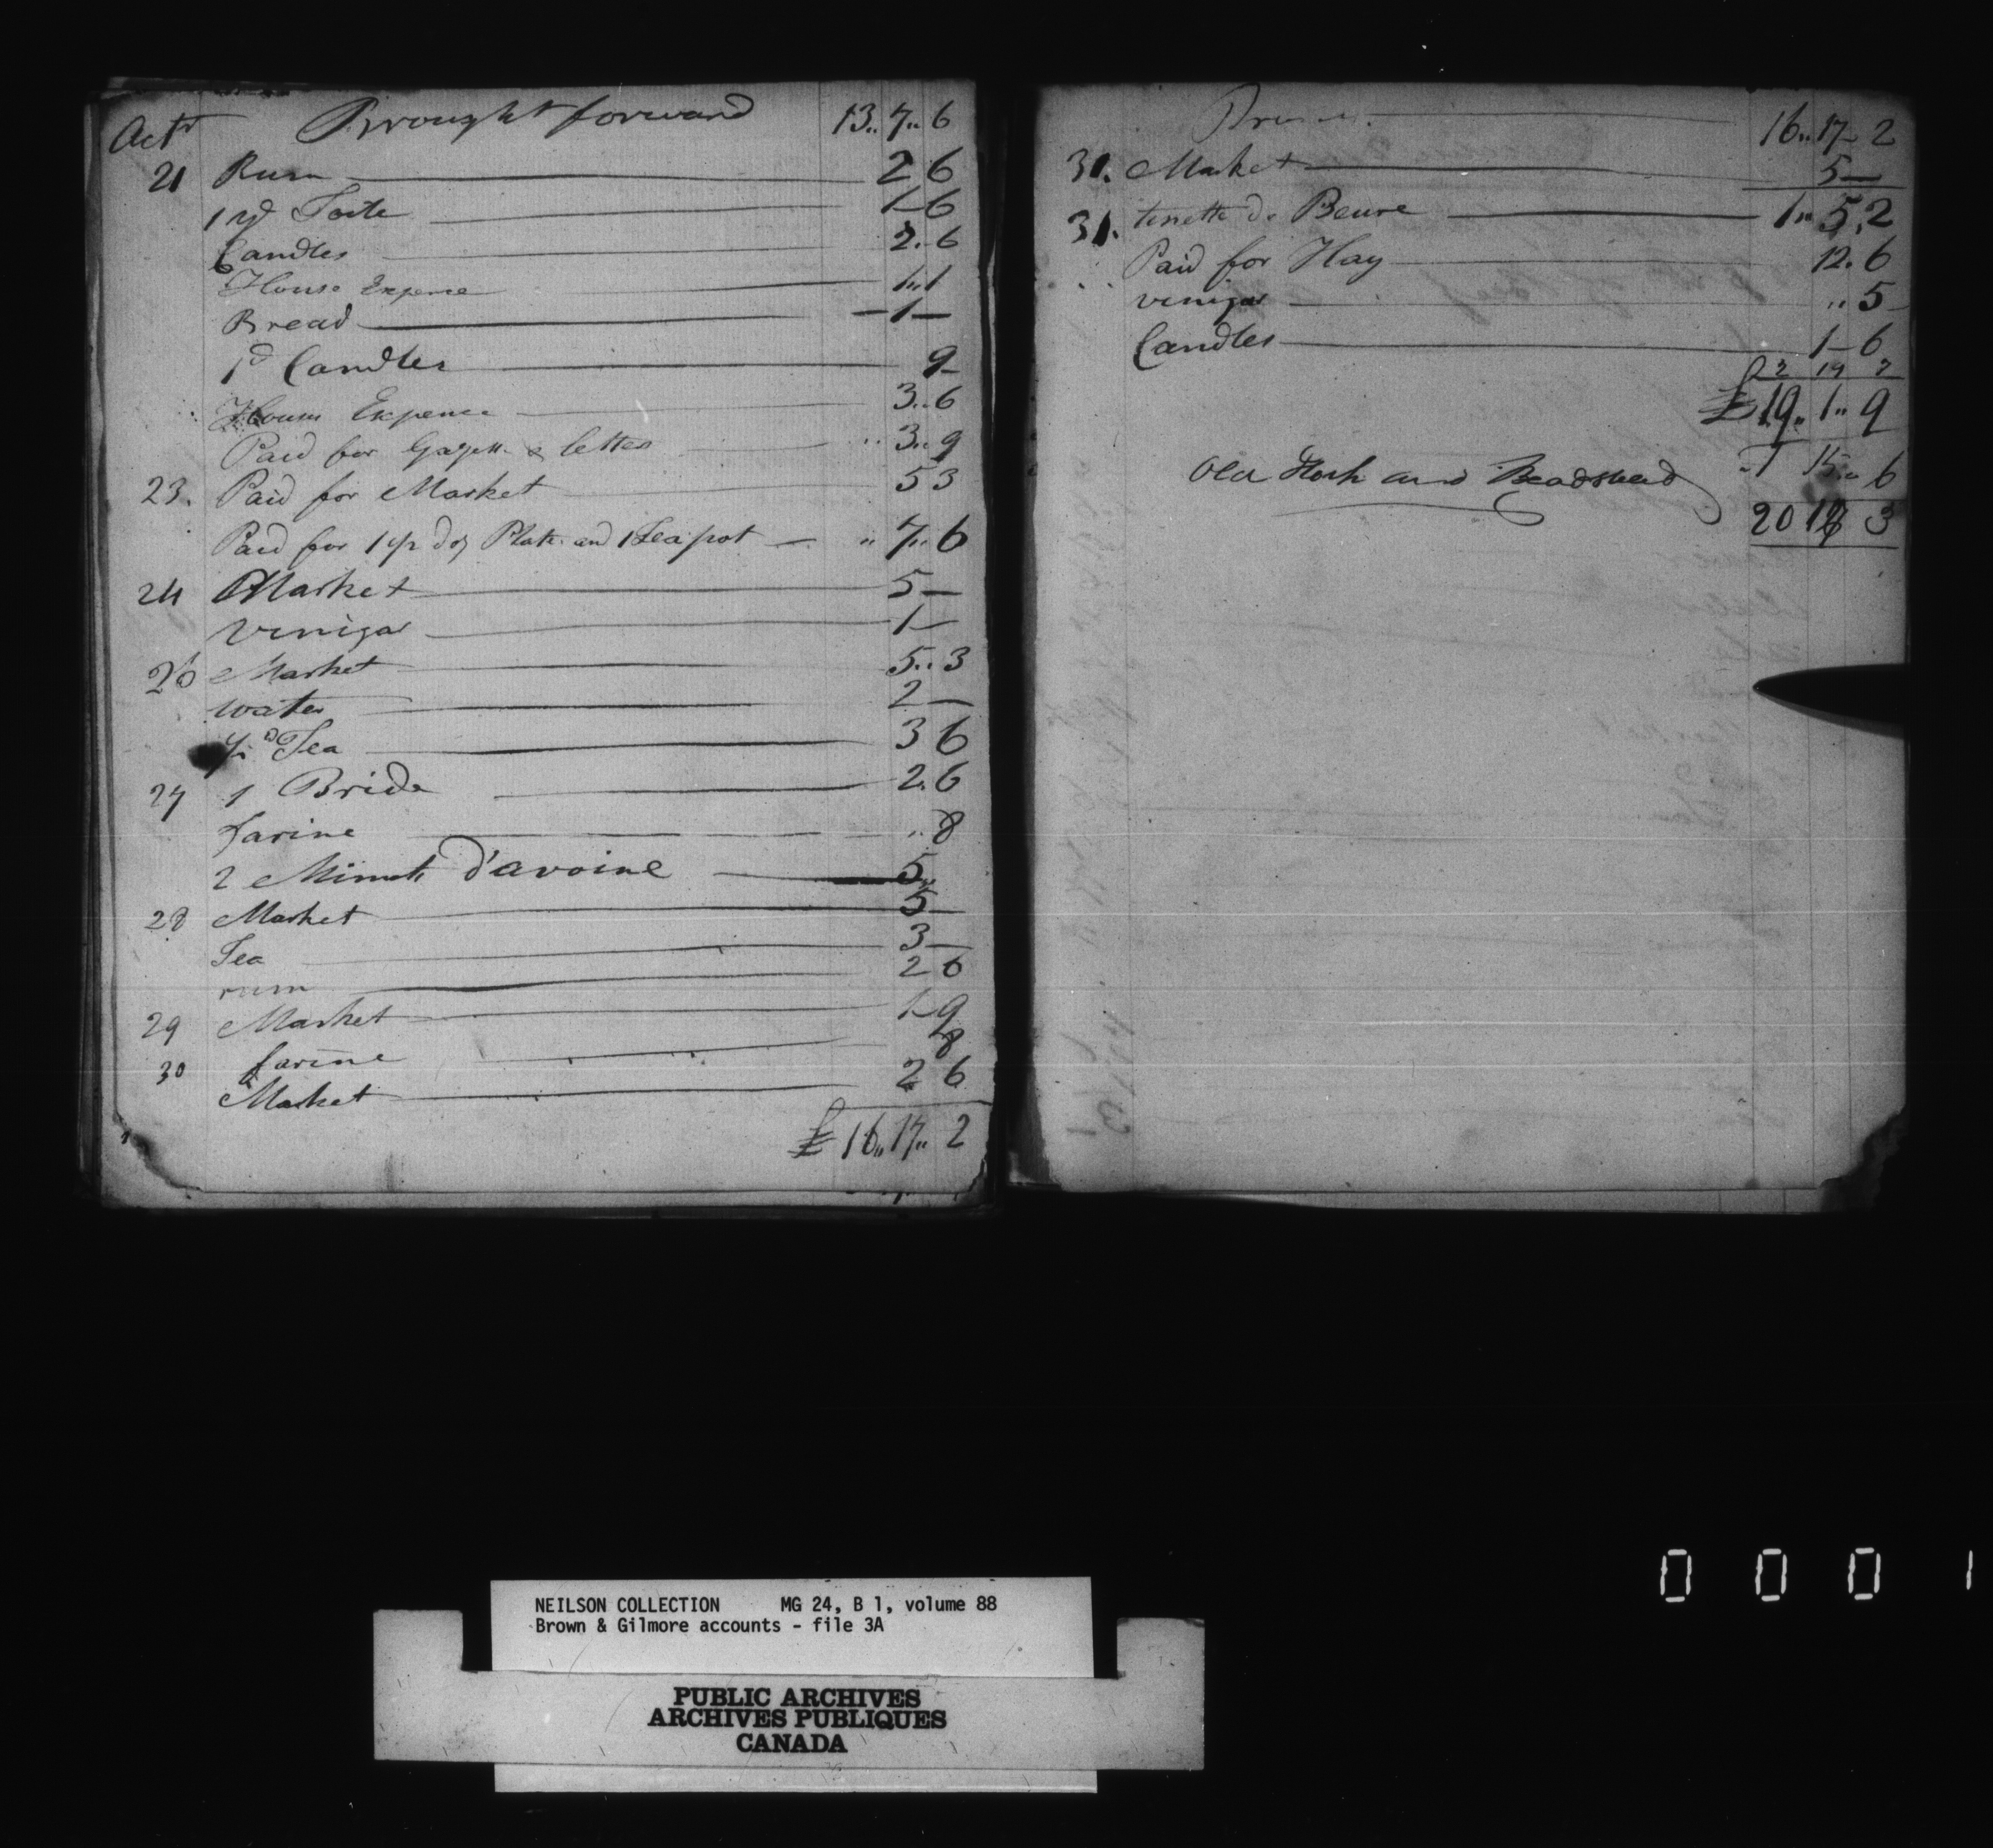 Octr Brought forward 13.. 7.. 6
21 Rum 2 6
1 yd Toile 1-6
Candles 2. 6
House Expence 1..1
Bread -1-
1d Candles 9-
House Expence 3..6
Paid for Gazett. & letter .. 3.. 9
23. Paid for Market 5 3
Paid for 1 1/2 doz Plate. and 1 Teapot .. 7.. 6
24 Market 5-
Vinigar 1-
26 Market 5.. 3
water 2-
1/2 d Tea 3 6
27 1 Bride 2. 6
farine .. 8
2 Minots d'avoine 5
28 Market 5-
Tea 3-
rum 2 6
29 Market 1-9
farine 8
30 Market 2 6
£ 16.. 17.. 2
16.. 17- 2
31. Market 5-
31. tinette de Beure 1.. 5.. 2
Paid for Hay 12. 6
vinigar .. 5-
Candles 1-6
£ 19.. 1.. 9
Old and Beadstead 1 15.. 6
20 3
NEILSON COLLECTION MG 24, B 1, volume 88
Brown & Gilmore accounts - file 3A
PUBLIC ARCHIVES
ARCHIVES PUBLIQUES
CANADA
0 0 0 1